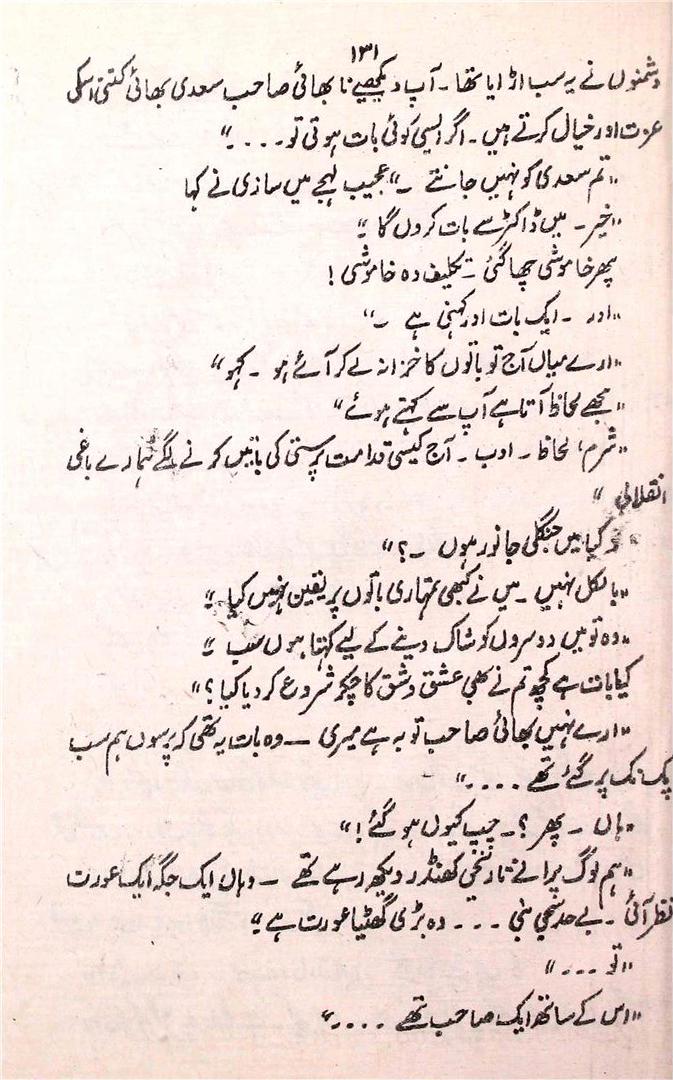 ۱۳۱
دشمنوں نے یہ سب اڑایا تھا۔ آپ دیکھیے نا بھائی صاحب سعدی بھائی کتنی اسکی
عزت اور خیال کرتے ہیں۔ اگر ایسی کوئی بات ہوتی تو۔۔۔۔"
"تم سعدی کو نہیں جانتے ۔" عجیب لہجے میں سازی نے کہا
"خیر۔ میں ڈاکٹر سے بات کروں گا"
پھر خاموشی چھا گئی ۔ تکلیف دہ خاموشی!
"اور ۔ ایک بات اور کہنی ہے ۔"
"ارے میاں آج تو باتوں کا خزانہ لے کر آئے ہو ۔ کہو"
"مجھے لحاظ آتا ہے آپ سے کہتے ہوئے"
"شرم، لحاظ ۔ ادب ۔ آج کیسی قدامت پرستی کی باتیں کرنے لگے ہمارے باغی
انقلابی"
"تو کیا میں جنگلی جانور ہوں ۔؟"
"بالکل نہیں ۔ میں نے کبھی تمہاری باتوں پر یقین نہیں کیا"
"وہ تو میں دوسروں کو شاک دینے کے لیے کہتا ہوں سب"
کیا بات ہے کچھ تم نے بھی عشق وشق کا چکر شروع کر دیا کیا؟"
"ارے نہیں بھائی صاحب توبہ ہے میری ــ وہ بات یہ تھی کہ پرسوں ہم سب
پک نک پر گئے تھے ۔۔۔۔"
"ہاں ۔ پھر؟ ۔ چپ کیوں ہو گئے!"
"ہم لوگ پرانے تاریخی کھنڈر دیکھ رہے تھے ــ وہاں ایک جگہ ایک عورت
نظر آئی ۔ بے حد سجی بنی ۔۔۔ وہ بڑی گھٹیا عورت ہے"
"تو ۔۔۔"
"اس کے ساتھ ایک صاحب تھے ۔۔۔۔"